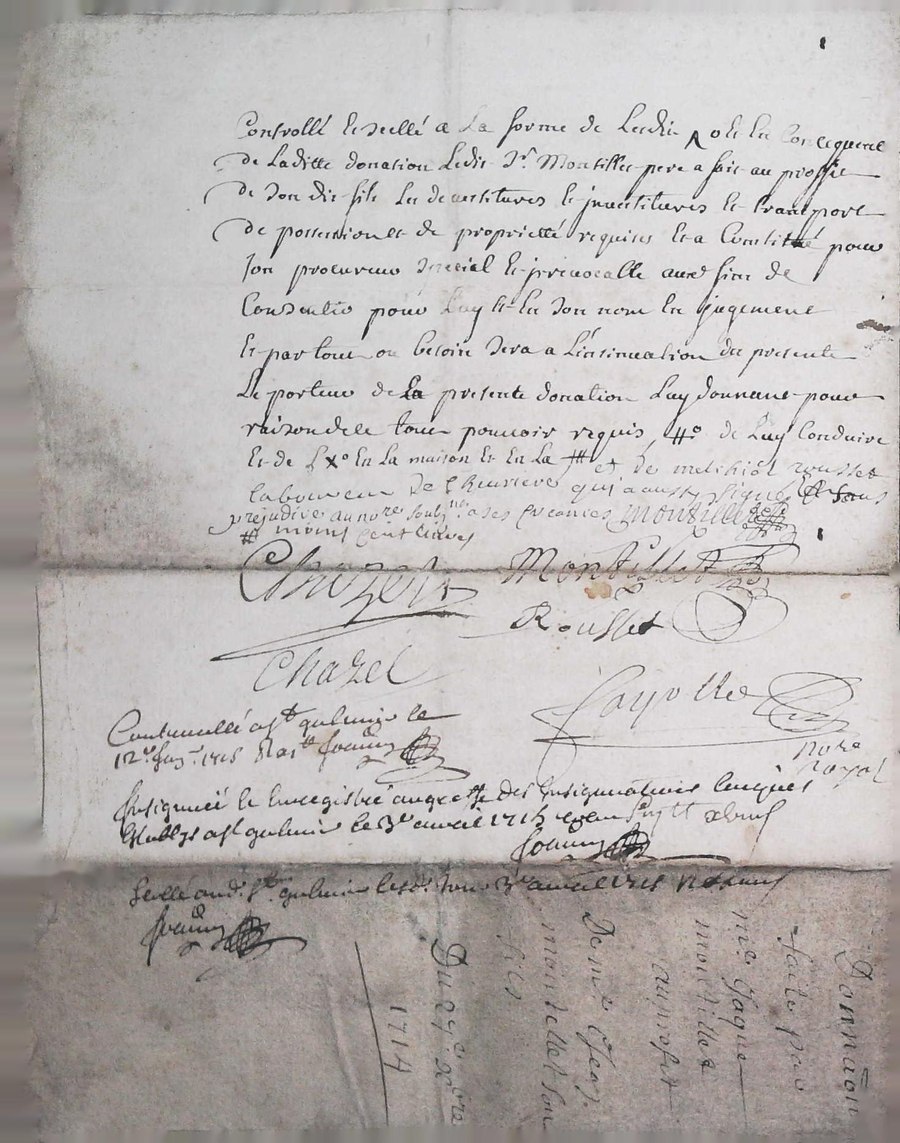 Controllé et scellé a La forme de Ledit et en Conсequence
de Laditte donation Ledit Sr. Montillet pere a fait au proffit
de Son dit fils Les devestitures et jnvestitures et transport
de possession et de proprietté requises Et a Constitué pour
son procureur special et jrrevocable aux fins de
Consentir pour Luy et En Son nom En jugement
Et partout ou besoin Sera a L'insinuation du presente
Le porteur de La presente donation Luy donnant pour
raison de le tout pouvoir requis, de Luy Conduire
Et de En La maison Et En La et de melchiol rousset
laboureur de qui a aussy signé sans
prejudice au nore soubné a ses Montillet
moins cent livres
Chazel Montillet
Rousset
Chazel
Fayolle
nore
Royal
Controuellé a St galmier le
12e 1715 Joanny
Insignué et Enregistré au greffe des Insignuations laiques
Establys a St galmier le 3e avril 1715
Joanny
Scellé aud. St galmier led. Jour 3e avril 1715
Joanny
Donnaõn
faite par
me Jaque
montillet
au profit
De me
montellet son
fils
Du 29e xbre
1714